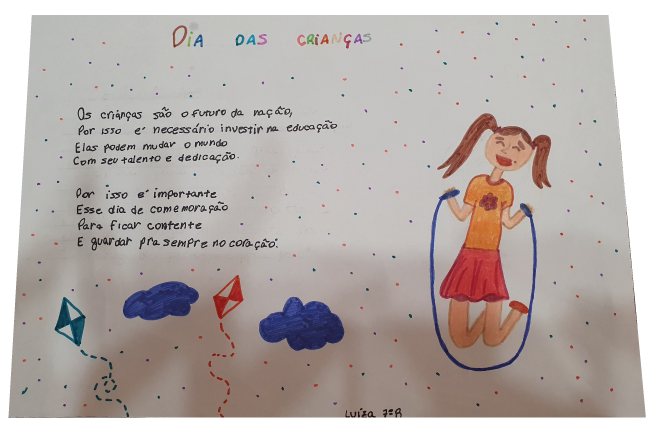 DiA DAS CRIANÇAS
Os crianças são o futuro da nação,
Por isso é necessário investir na educação
Elas podem mudar o mundo
Com seu talento e dedicação.
Por isso é importante
Esse dia de comemoração
Para ficar contente
E guardar pra sempre no coração.
Luiza 7ºB